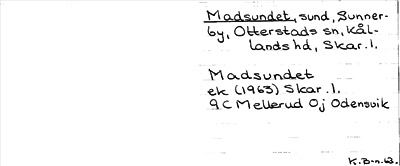 Madsundet, sund, Gunner-
by, Otterstads sn, Kål-
lands hd, Skar. l.
Madsundet
ek (1963) Skar. l.
9C Mellerud 0j Odensvik
K.B-n. 63.